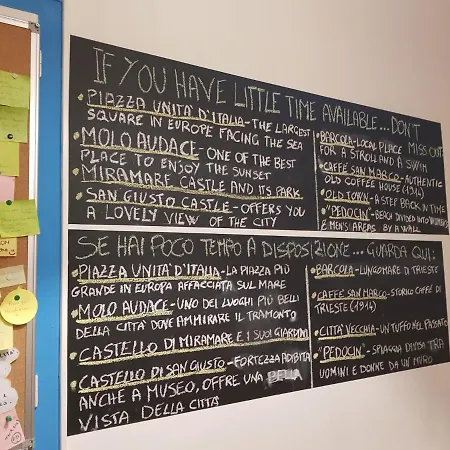 IF YOU HAVE LITTLE TIME AVAILABLE... DON'T
MISS OUT:
• PIAZZA UNITA' D'ITALIA - THE LARGEST
SQUARE IN EUROPE FACING THE SEA
• MOLO AUDACE - ONE OF THE BEST
PLACE TO ENJOY THE SUNSET
• MIRAMARE CASTLE AND ITS PARK
• SAN GIUSTO CASTLE - OFFERS YOU
A LOVELY VIEW OF THE CITY
• BARCOLA - LOCAL PLACE
FOR A STROLL AND A SWIM
• CAFFÈ SAN MARCO - AUTHENTIC
OLD COFFEE HOUSE (1914)
• OLD TOWN - A STEP BACK IN TIME
• "PEDOCIN" - BEACH DIVIDED INTO WOMEN'S
E MEN'S AREAS BY A WALL
SE HAI POCO TEMPO A DISPOSIZIONE... GUARDA QUI:
• PIAZZA UNITA' D'ITALIA - LA PIAZZA PIÙ
GRANDE IN EUROPA AFFACCIATA SUL MARE
• MOLO AUDACE - UNO DEI LUOGHI PIÙ BELLI
DELLA CITTA' DOVE AMMIRARE IL TRAMONTO
• CASTELLO DI MIRAMARE E I SUOI GIARDINI
• CASTELLO DI SAN GIUSTO - FORTEZZA ADIBITA
ANCHE A MUSEO, OFFRE UNA BELLA
VISTA DELLA CITTÀ
• BARCOLA - LUNGOMARE DI TRIESTE
• CAFFÈ SAN MARCO - STORICO CAFFÈ DI
TRIESTE (1914)
• CITTÀ VECCHIA - UN TUFFO NEL PASSATO
• "PEDOCIN" - SPIAGGIA DIVISA TRA
UOMINI E DONNE DA UN MURO